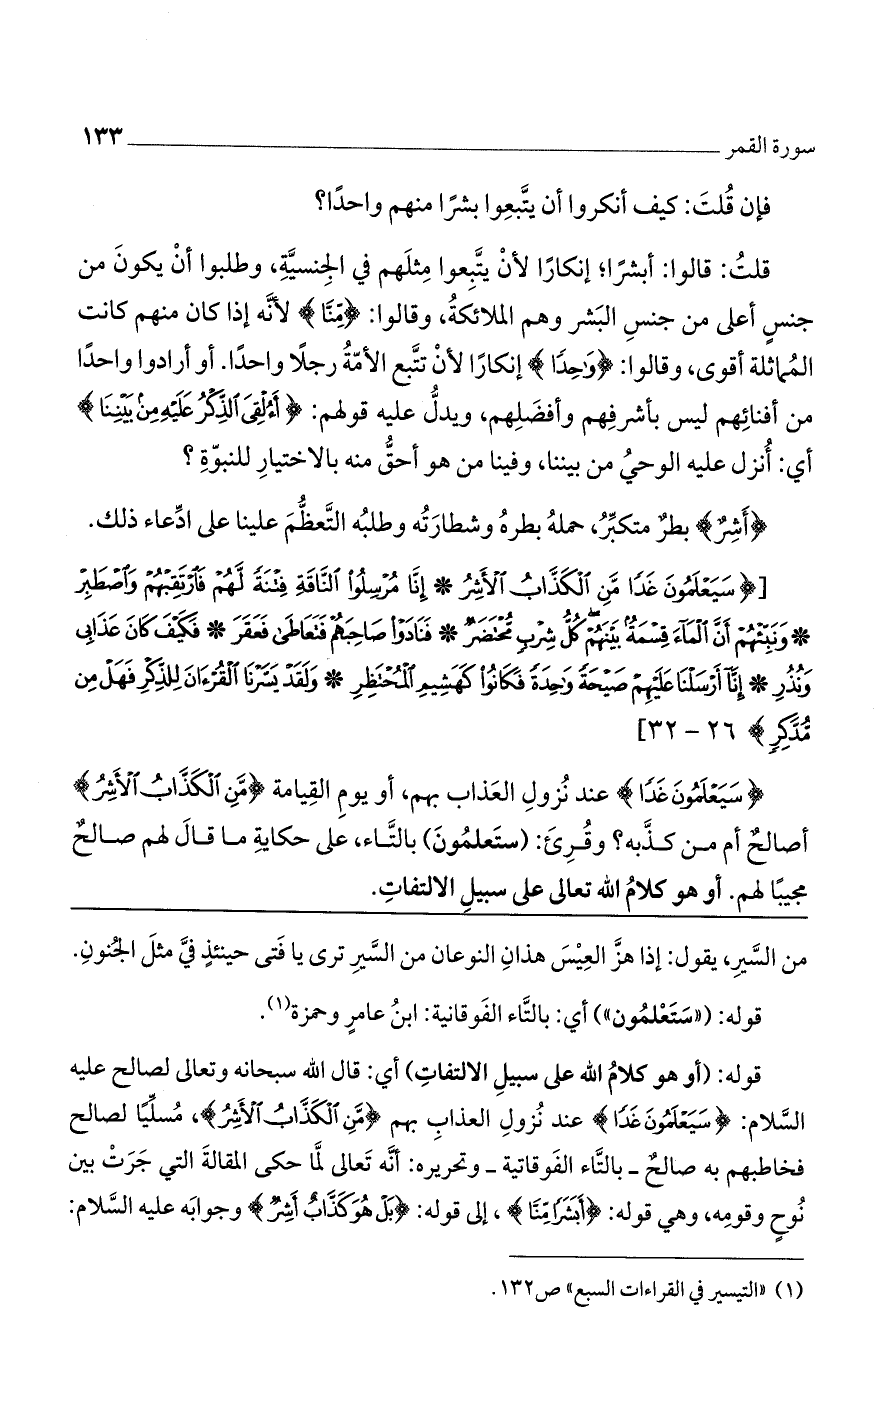 سورة القمر ١٣٣
فإن قُلتَ: كيف أنكروا أن يتَّبِعوا بشرًا منهم واحدًا؟
قلتُ: قالوا: أبشرًا؛ إنكارًا لأنْ يتَّبِعوا مِثلَهم في الجِنسيَّةِ، وطلبوا أنْ يكونَ من
جنسٍ أعلى من جنسِ البَشر وهم الملائكةُ، وقالوا: ﴿مِّنَّا﴾ لأنَّه إذا كان منهم كانت
المُماثلة أقوى، وقالوا: ﴿وَٰحِدًا﴾ إنكارًا لأنْ تتَّبع الأمّةُ رجلًا واحدًا. أو أرادوا واحدًا
من أفنائِهم ليس بأشرفِهم وأفضَلِهم، ويدلُّ عليه قولهم: ﴿أَءُلْقِىَ ٱلذِّكْرُ عَلَيْهِ مِنۢ بَيْنِنَا﴾
أي: أُنزل عليه الوحيُ من بيننا، وفينا من هو أحقُّ منه بالاختيارِ للنبوّةِ ؟
﴿أَشِرٌ﴾ بطرٌ متكبِّرُ، حملهُ بطرهُ وشطارَتُه وطلبُه التَّعظُّمَ علينا على ادِّعاء ذلك.
[﴿سَيَعْلَمُونَ غَدًا مَّنِ ٱلْكَذَّابُ ٱلْأَشِرُ * إِنَّا مُرْسِلُوا۟ ٱلنَّاقَةِ فِتْنَةً لَّهُمْ فَٱرْتَقِبْهُمْ وَٱصْطَبِرْ
* وَنَبِّئْهُمْ أَنَّ ٱلْمَآءَ قِسْمَةٌۢ بَيْنَهُمْ ۖ كُلُّ شِرْبٍ مُّحْتَضَرٌ * فَنَادَوْا۟ صَاحِبَهُمْ فَتَعَاطَىٰ فَعَقَرَ * فَكَيْفَ كَانَ عَذَابِى
وَنُذُرِ * إِنَّآ أَرْسَلْنَا عَلَيْهِمْ صَيْحَةً وَٰحِدَةً فَكَانُوا۟ كَهَشِيمِ ٱلْمُحْتَظِرِ * وَلَقَدْ يَسَّرْنَا ٱلْقُرْءَانَ لِلذِّكْرِ فَهَلْ مِن
مُّدَّكِرٍ﴾ ٢٦ – ٣٢]
﴿سَيَعْلَمُونَ غَدًا﴾ عند نُزولِ العَذاب بهم، أو يومِ القِيامة ﴿مَّنِ ٱلْكَذَّابُ ٱلْأَشِرُ﴾
أصالحٌ أم مـن كـذَّبه؟ وقُـرِئَ: (ستَعلمُونَ) بالتَّـاء، على حكايةِ مـا قـالَ لهم صـالحٌ
مجيبًا لهم. أو هو كلامُ الله تعالى على سبيلِ الالتفاتِ.
من السَّيرِ، يقول: إذا هزَّ العِيْسَ هذانِ النوعان من السَّيرِ ترى يا فَتى حينئذٍ فيَّ مثلَ الجُنونِ.
قوله: («سَتَعْلمُون») أي: بالتَّاء الفَوقانية: ابنُ عامرٍ وحمزة(١).
قوله: (أو هو كلامُ الله على سبيلِ الالتفاتِ) أي: قال الله سبحانه وتعالى لصالح عليه
السَّلام: ﴿سَيَعْلَمُونَ غَدًا﴾ عند نُزولِ العذابِ بهم ﴿مَّنِ ٱلْكَذَّابُ ٱلْأَشِرُ﴾، مُسلِّيًا لصالح
فخاطبهم به صالحٌ ـ بالتَّاء الفَوقاتية ـ وتحريره: أنَّه تَعالى لمَّا حكى المقالةَ التي جَرَتْ بين
نُوحٍ وقومِه، وهي قوله: ﴿أَبَشَرًا مِّنَّا﴾ ، إلى قوله: ﴿بَلْ هُوَ كَذَّابٌ أَشِرٌ﴾ وجوابَه عليه السَّلام:
(١) «التيسير في القراءات السبع» ص١٣٢.